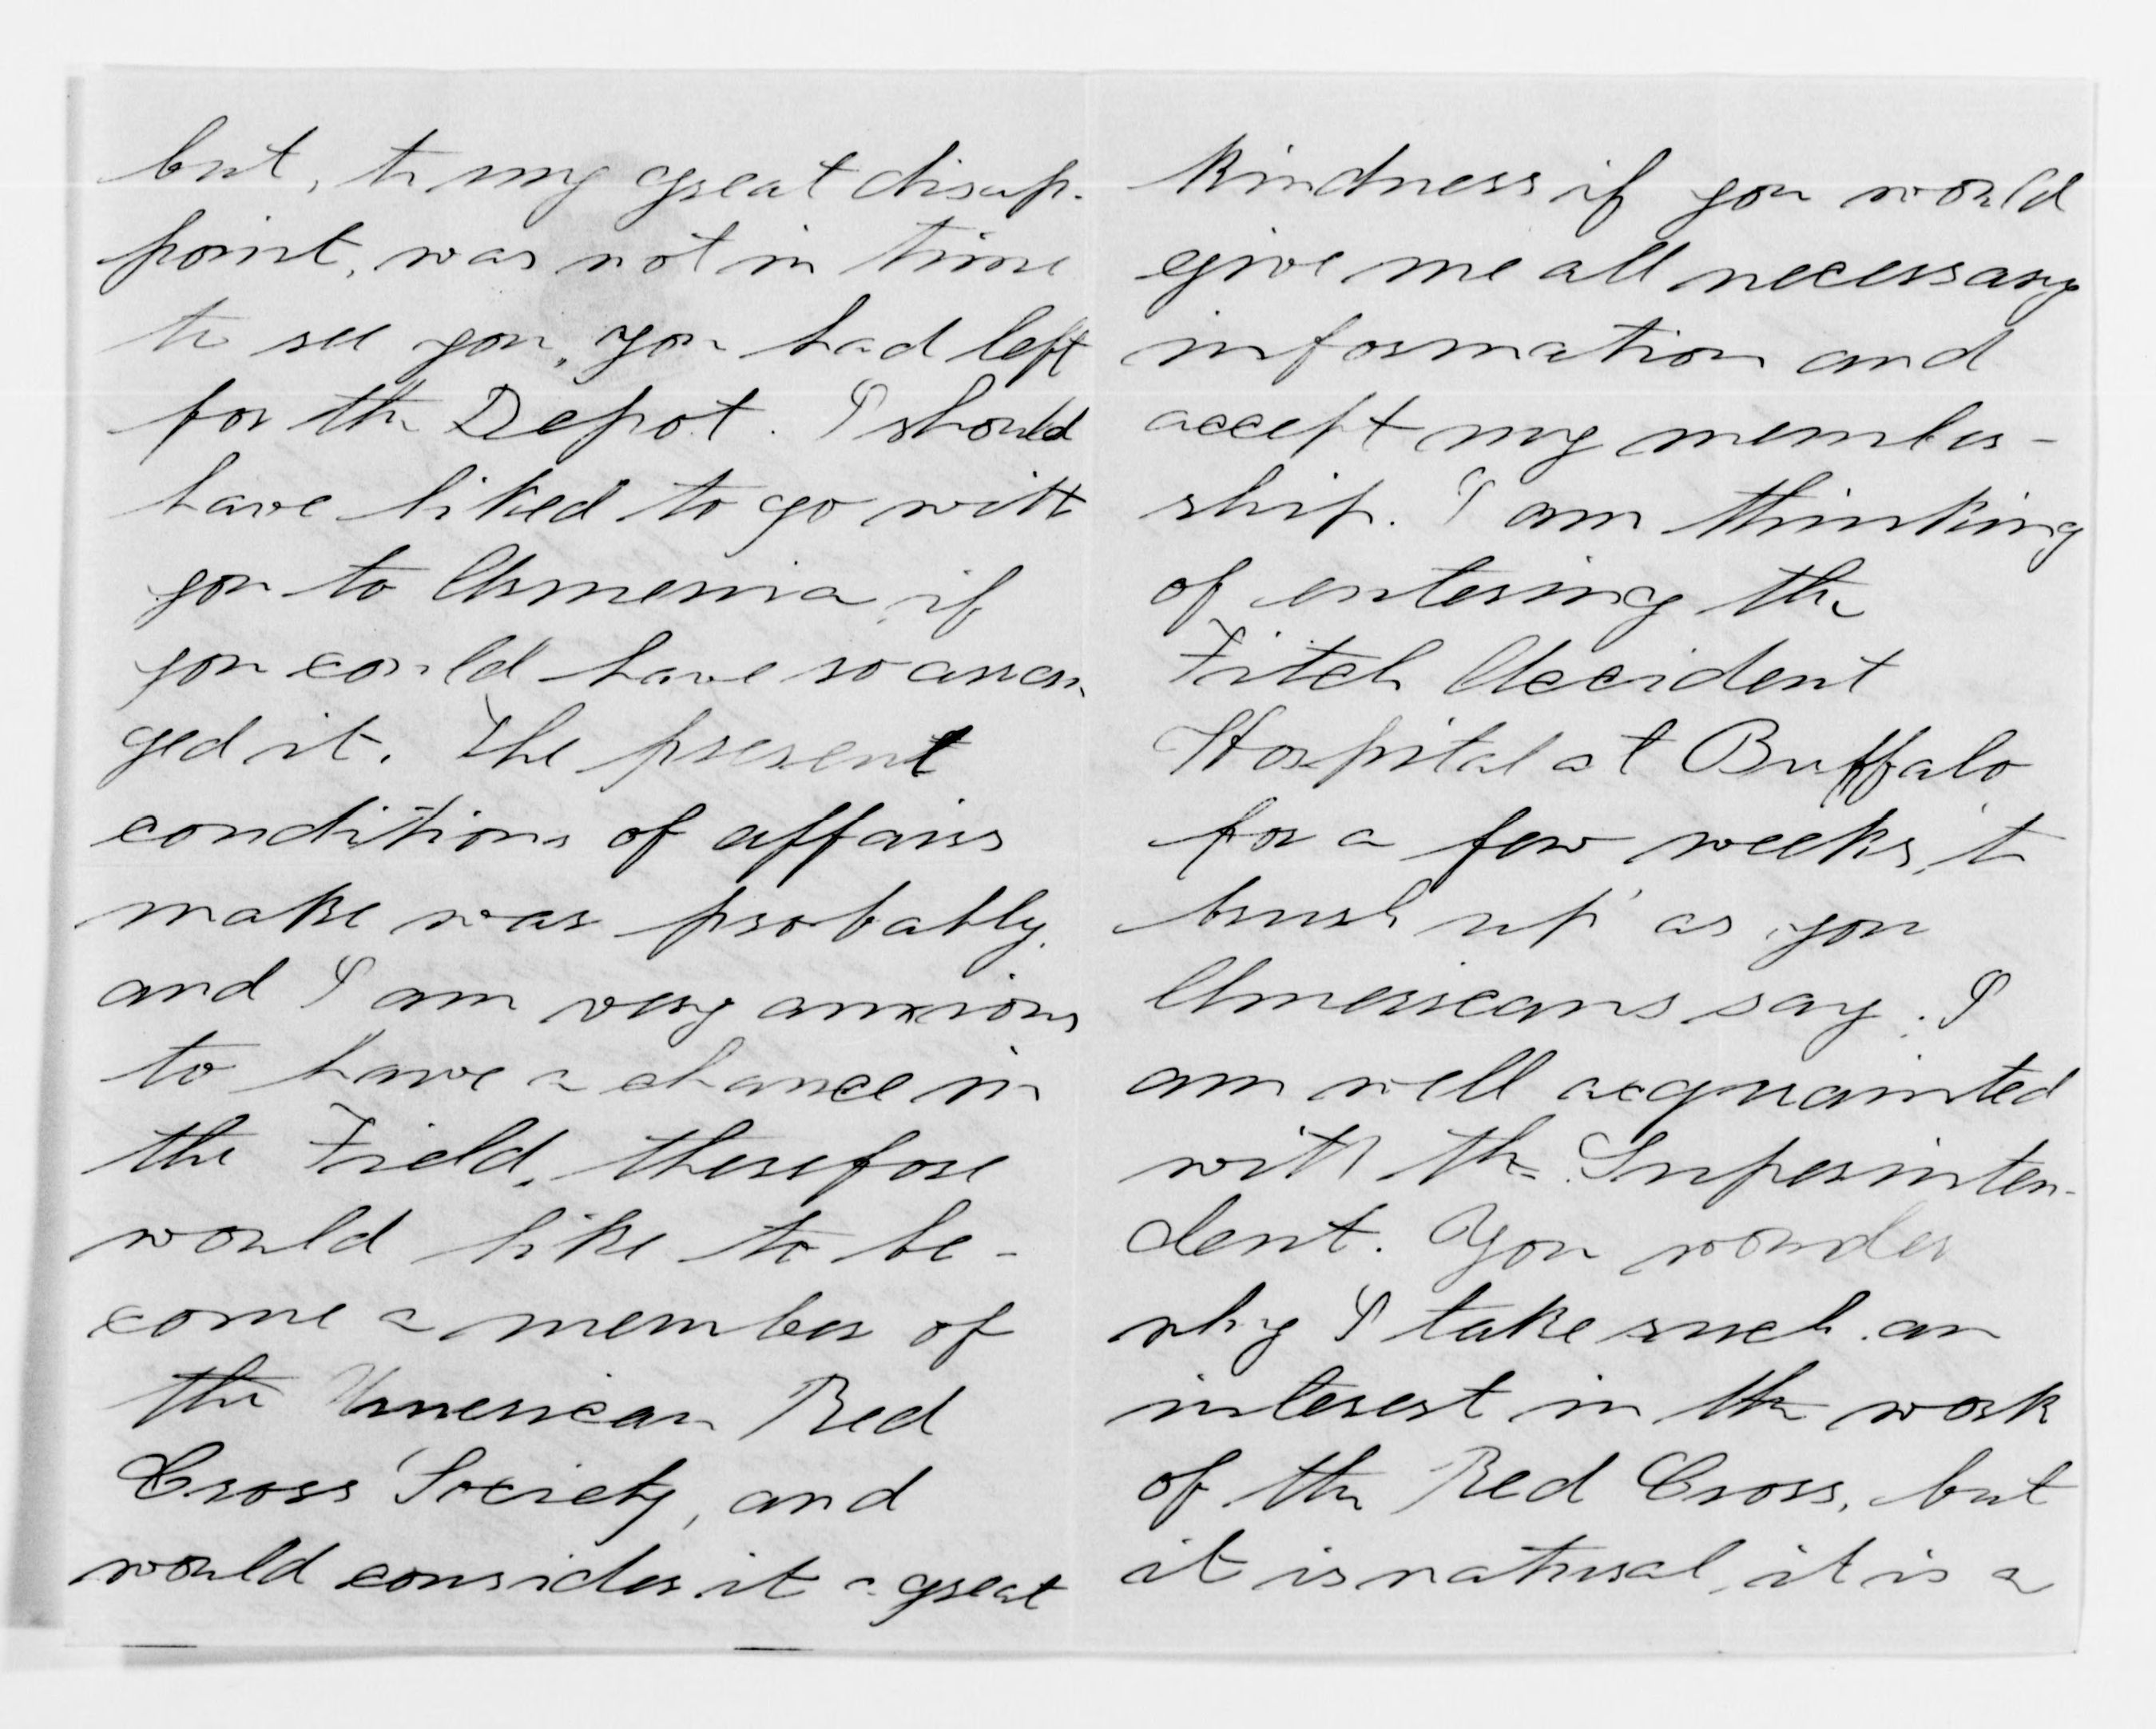 but, to my great disap-
point, was not in time
to see you, you had left
for the Depot. I should
have liked to go with
you to Armenia, if
you could have so arran-
ged it. The present
conditions of affairs
make war probably.
and I am very anxious
to have a chance in
the Field, therefore
would like to be-
come a member of
the American Red
Cross Society, and
would consider it a great
kindness if you would
give me all necessary
information and
accept my member-
ship. I am thinking
of entering the
Fitch Accident
Hospital at Buffalo
for a few weeks, 'to
brush up' as you
Americans say. I
am well acquainted
with the Superinten-
dent. You wonder
why I take such an
interest in the work
of the Red Cross, but
it is natural, it is a